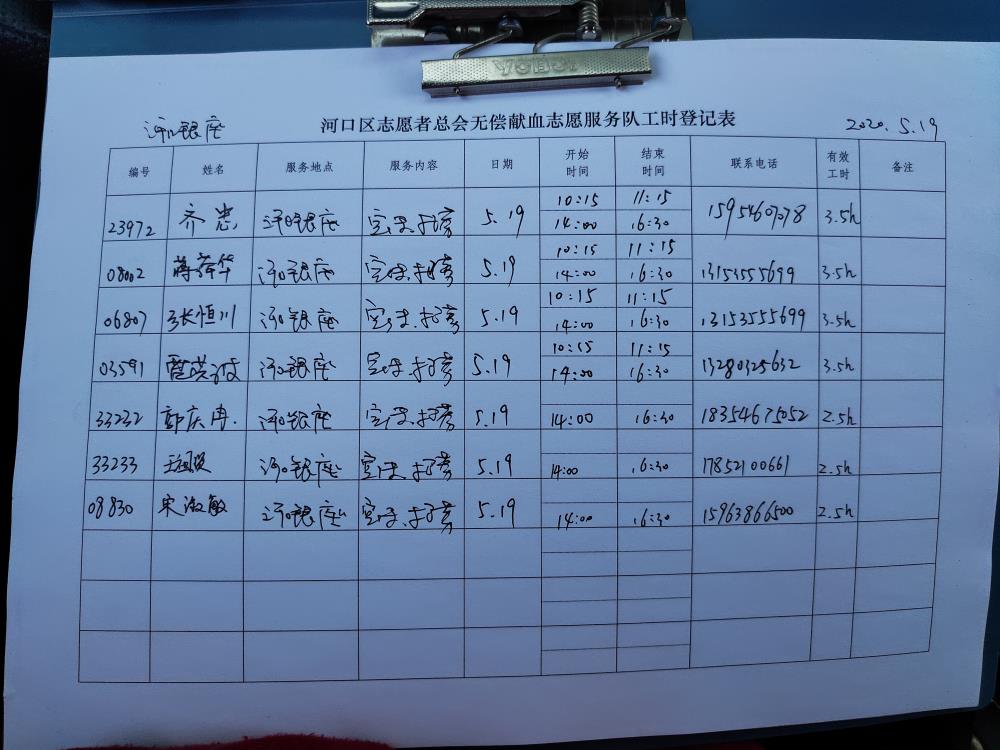 河口银座 河口区志愿者总会无偿献血志愿服务队工时登记表 2020.5.19
编号 姓名 服务地点 服务内容 日期 开始时间 结束时间 联系电话 有效工时 备注
23972 齐忠 河口银座 宣传.招募 5.19 10:15 11:15 14:00 16:30 15954607078 3.5h
08002 蒋荷华 河口银座 宣传.招募 5.19 10:15 11:15 14:00 16:30 13153555699 3.5h
06807 张恒川 河口银座 宣传.招募 5.19 10:15 11:15 14:00 16:30 13153555699 3.5h
03591 河口银座 宣传.招募 5.19 10:15 11:15 14:00 16:30 13280325632 3.5h
33232 郭庆冉. 河口银座 宣传.招募 5.19 14:00 16:30 18354675052 2.5h
33233 河口银座 宣传.招募 5.19 14:00 16:30 17852100661 2.5h
08830 宋淑敏 河口银座 宣传.招募 5.19 14:00 16:30 15963866500 2.5h